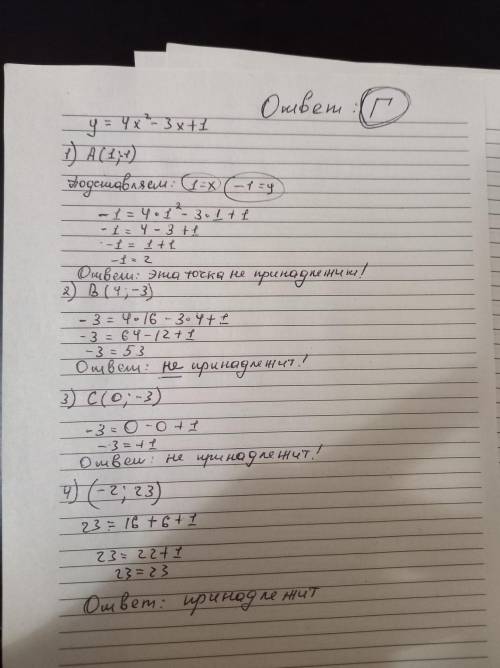 Ответ: Г
y = 4x² - 3x + 1
1) A (1;-1)
Подставляем: 1=x -1=y
-1 = 4•1² - 3•1 + 1
-1 = 4 - 3 + 1
-1 = 1 + 1
-1 = 2
Ответ: эта точка не принадлежит!
2) B (4; -3)
-3 = 4•16 - 3•4 + 1
-3 = 64 - 12 + 1
-3 = 53
Ответ: не принадлежит!
3) C (0; -3)
-3 = 0 - 0 + 1
-3 = +1
Ответ: не принадлежит!
4) (-2; 23)
23 = 16 + 6 + 1
23 = 22 + 1
23 = 23
Ответ: принадлежит